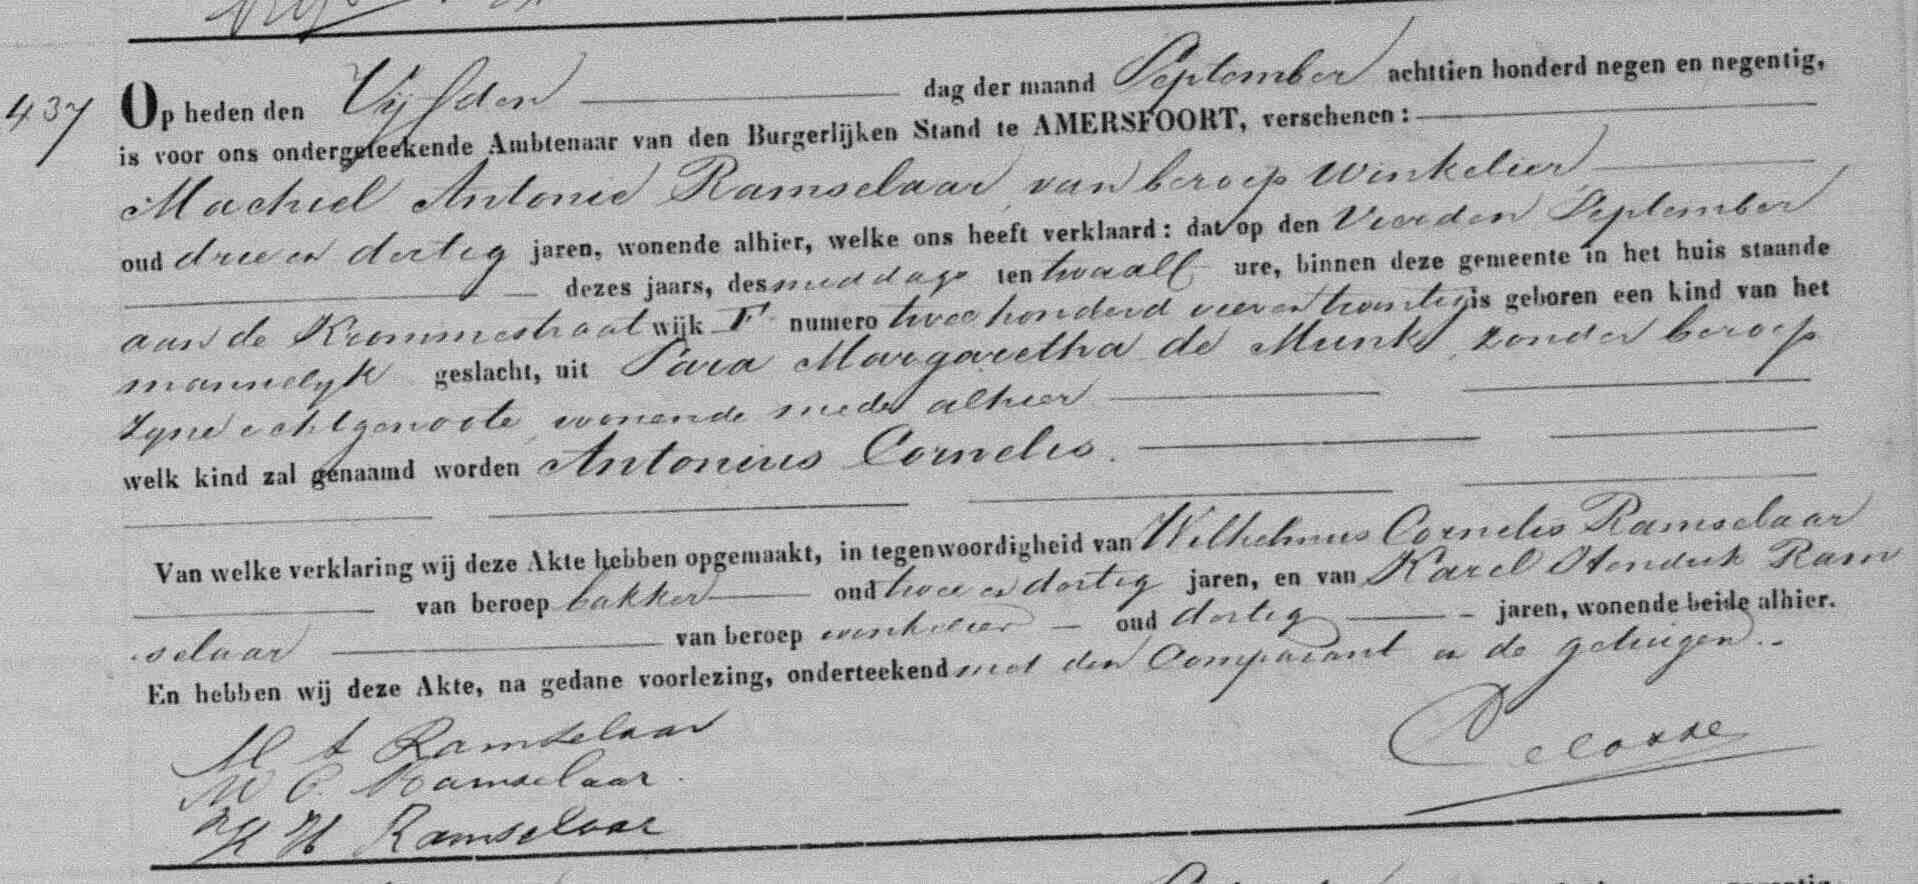 437
Op heden den Vijfden dag der maand September achttien honderd negen en negentig,
is voor ons ondergeteekende Ambtenaar van den Burgerlijken Stand te AMERSFOORT, verschenen:
Machiel Antonie Ramselaar, van beroep winkelier
oud drie en dertig jaren, wonende alhier, welke ons heeft verklaard: dat op den Vierden September
dezes jaars, des middags ten twaalf ure, binnen deze gemeente in het huis staande
aan de Krommestraat wijk F numero twee honderd vier en twintig is geboren een kind van het
mannelijk geslacht, uit Sara Margaretha de Munk, zonder beroep
zyne echtgenoote, wonende mede alhier
welk kind zal genaamd worden Antonius Cornelis.
Van welke verklaring wij deze Akte hebben opgemaakt, in tegenwoordigheid van Wilhelmus Cornelis Ramselaar
van beroep bakker oud twee en dertig jaren, en van Karel Hendrik Ram
selaar van beroep winkelier oud dertig jaren, wonende beide alhier.
En hebben wij deze Akte, na gedane voorlezing, onderteekend met den Comparant en de getuigen.
M A Ramselaar
W C. Ramselaar.
K H Ramselaar